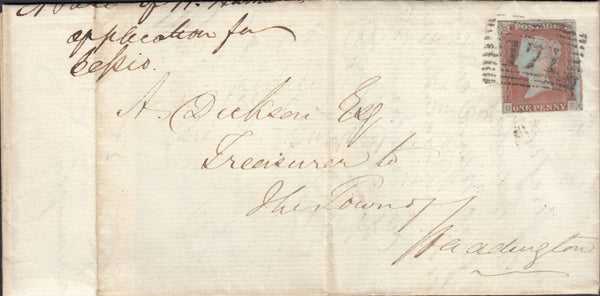 application for
A. Dickson Esq
Treasurer to
The Town of
Haddington
POSTAGE
171
ONE PENNY